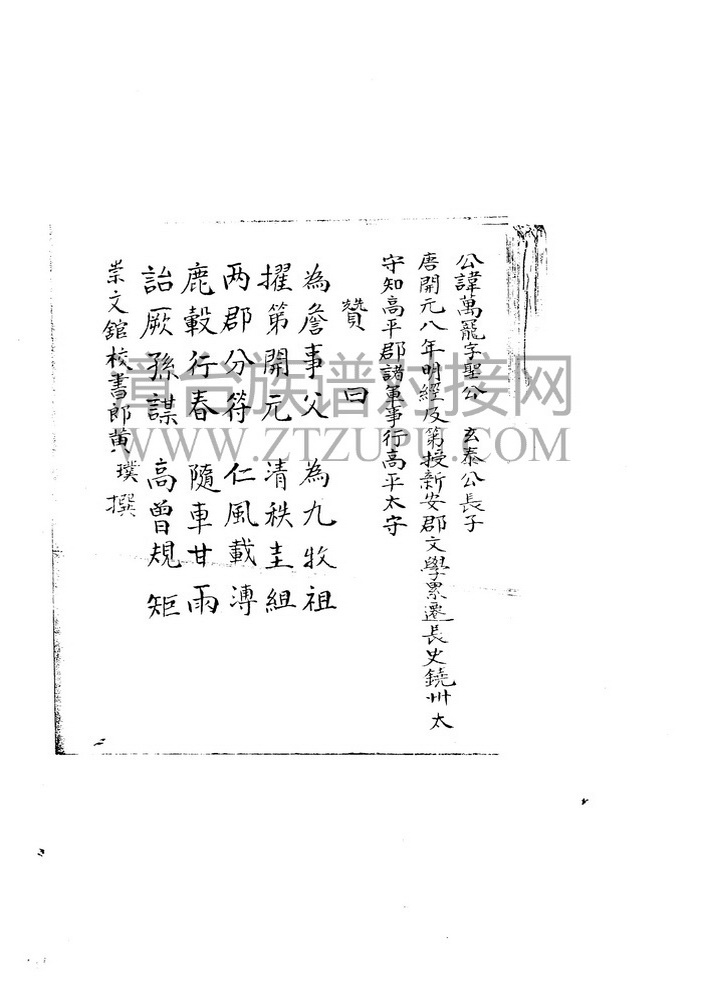 公諱萬寵字聖公 玄泰公長子
唐開元八年明經及第授新安郡文學累遷長史鐃州太
守知高平郡諸軍事行高平太守
贊曰
為詹事父 為九牧祖
擢第開元 清秩圭組
两郡分符 仁風載溥
鹿轂行春 隨車甘雨
詒厥孫謀 高曾規矩
崇文館校書郎黄璞撰
漳台族谱对接网
WWW.ZTZUPU.COM